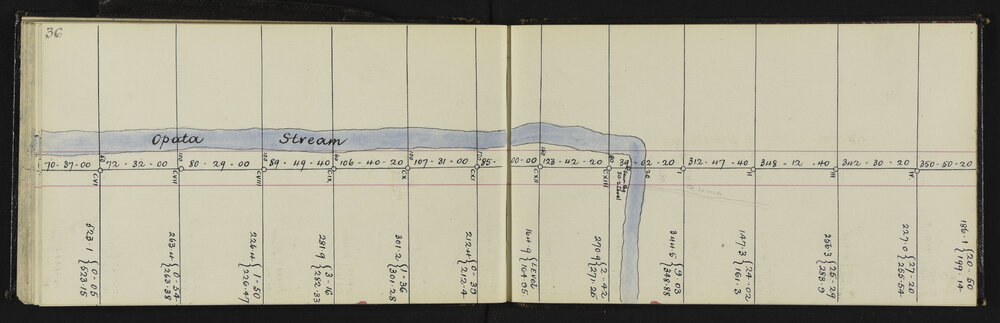 36
Opata Stream
70-37-00 72-32-00 80-29-00 89-49-40 106-40-20 107-31-00 85-00-00 123-42-20 39-02-20 312-47-40 348-12-40 342-30-20 350-50-20
CVI CVII CVIII CIX CX CXI CXII CXIII I II III IV
523.1 {0-05 523.15
263.4 {0-54 263.38
226.4 {1-50 226.47
281.9 {3-16 282.33
301.2 {1-36 301.28
212.4 {0-39 212.4
164.9 {Level 164.95
270.9 {2-42 271.25
344.5 {9-03 348.88
147.3 {24-02 161.3
256.3 {25-29 283.9
227.0 {27-20 255.54
186.1 {20-50 199.14